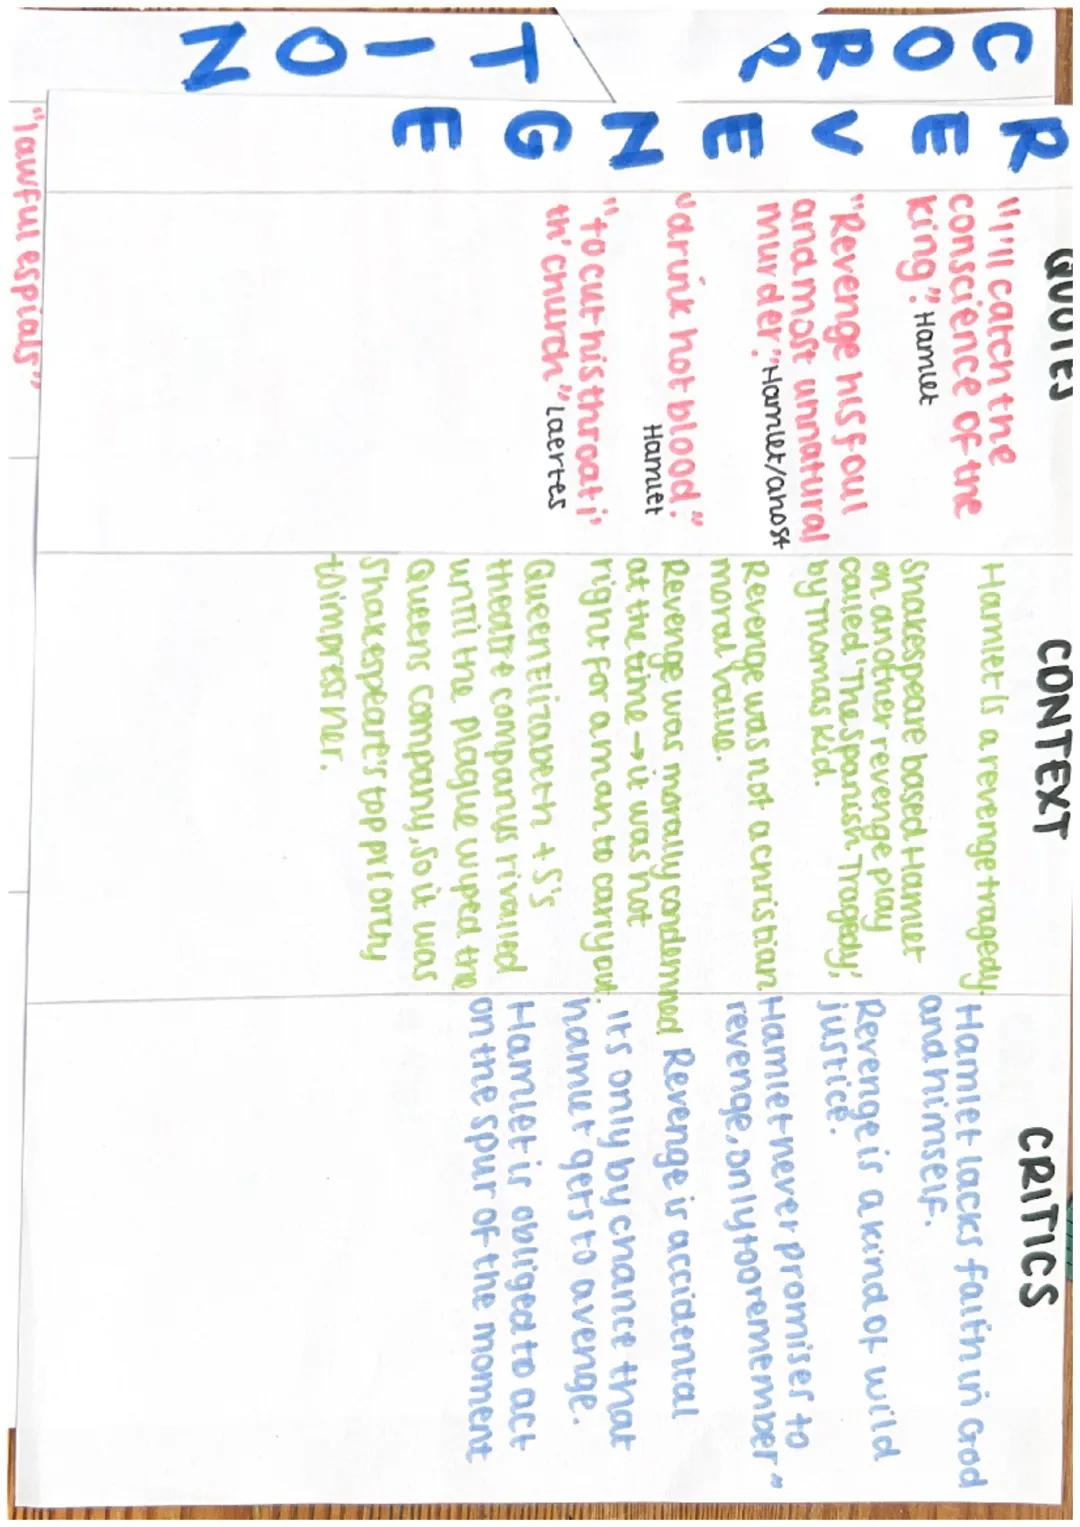 CORR TION
REVENGE
QUOTES
"I'll catch the
conscience of the
king". Hamlet
"Revenge his foul
and most unnatural
murder." Hamlet/Ghost
"drink hot blood."
Hamlet
"to cut his throat i'
th' church" Laertes
"lawful espials"
CONTEXT
Hamlet is a revenge tragedy.
Shakespeare based Hamlet
on another revenge play
called 'The Spanish Tragedy,'
by Thomas Kid.
Revenge was not a christian
moral value.
Revenge was morally condemned
at the time → it was not
right for a man to carry out.
Queen Elizabeth + S's
theatre companys rivalled
until the plague wiped the
Queens company, so it was
Shakespeart's top priority
to impress her.
CRITICS
Hamlet lacks faith in God
and himself.
Revenge is a kind of wild
justice.
Hamlet never promises to
revenge, only too remember"
Revenge is accidental
its only by chance that
hamlet gets to avenge.
Hamlet is obliged to act
on the spur of the moment